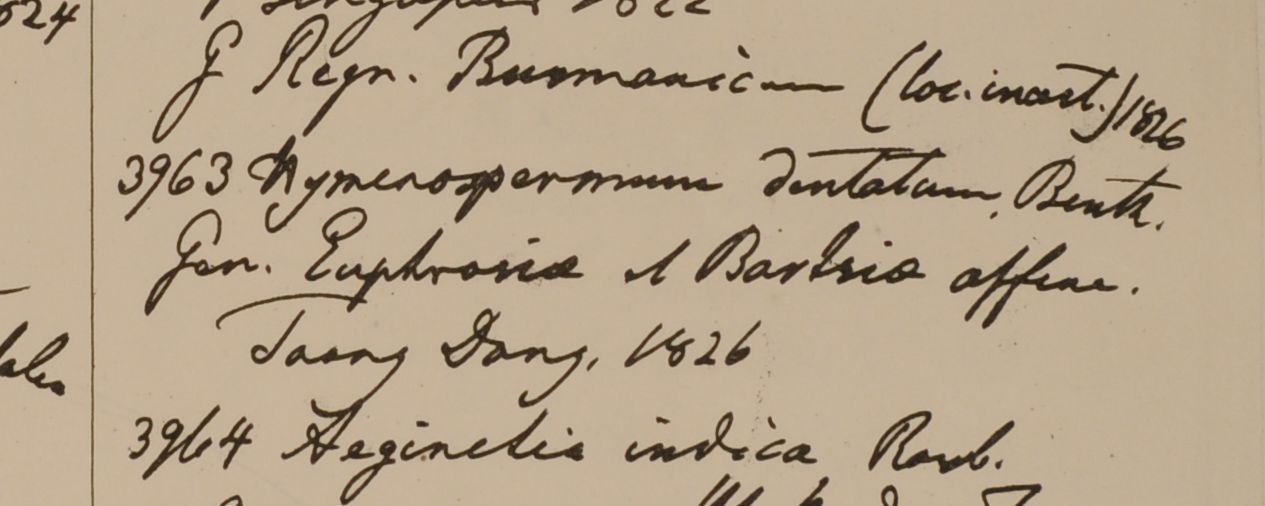 824 Singapur 1822
G Regn. Burmanicum (loc. incert.) 1826
3963 Hymenospermum dentatum, Benth.
Gen. Euphrasiæ et Bartsiæ affine.
Taong Dong, 1826
3964 Aeginetia indica Roxb.